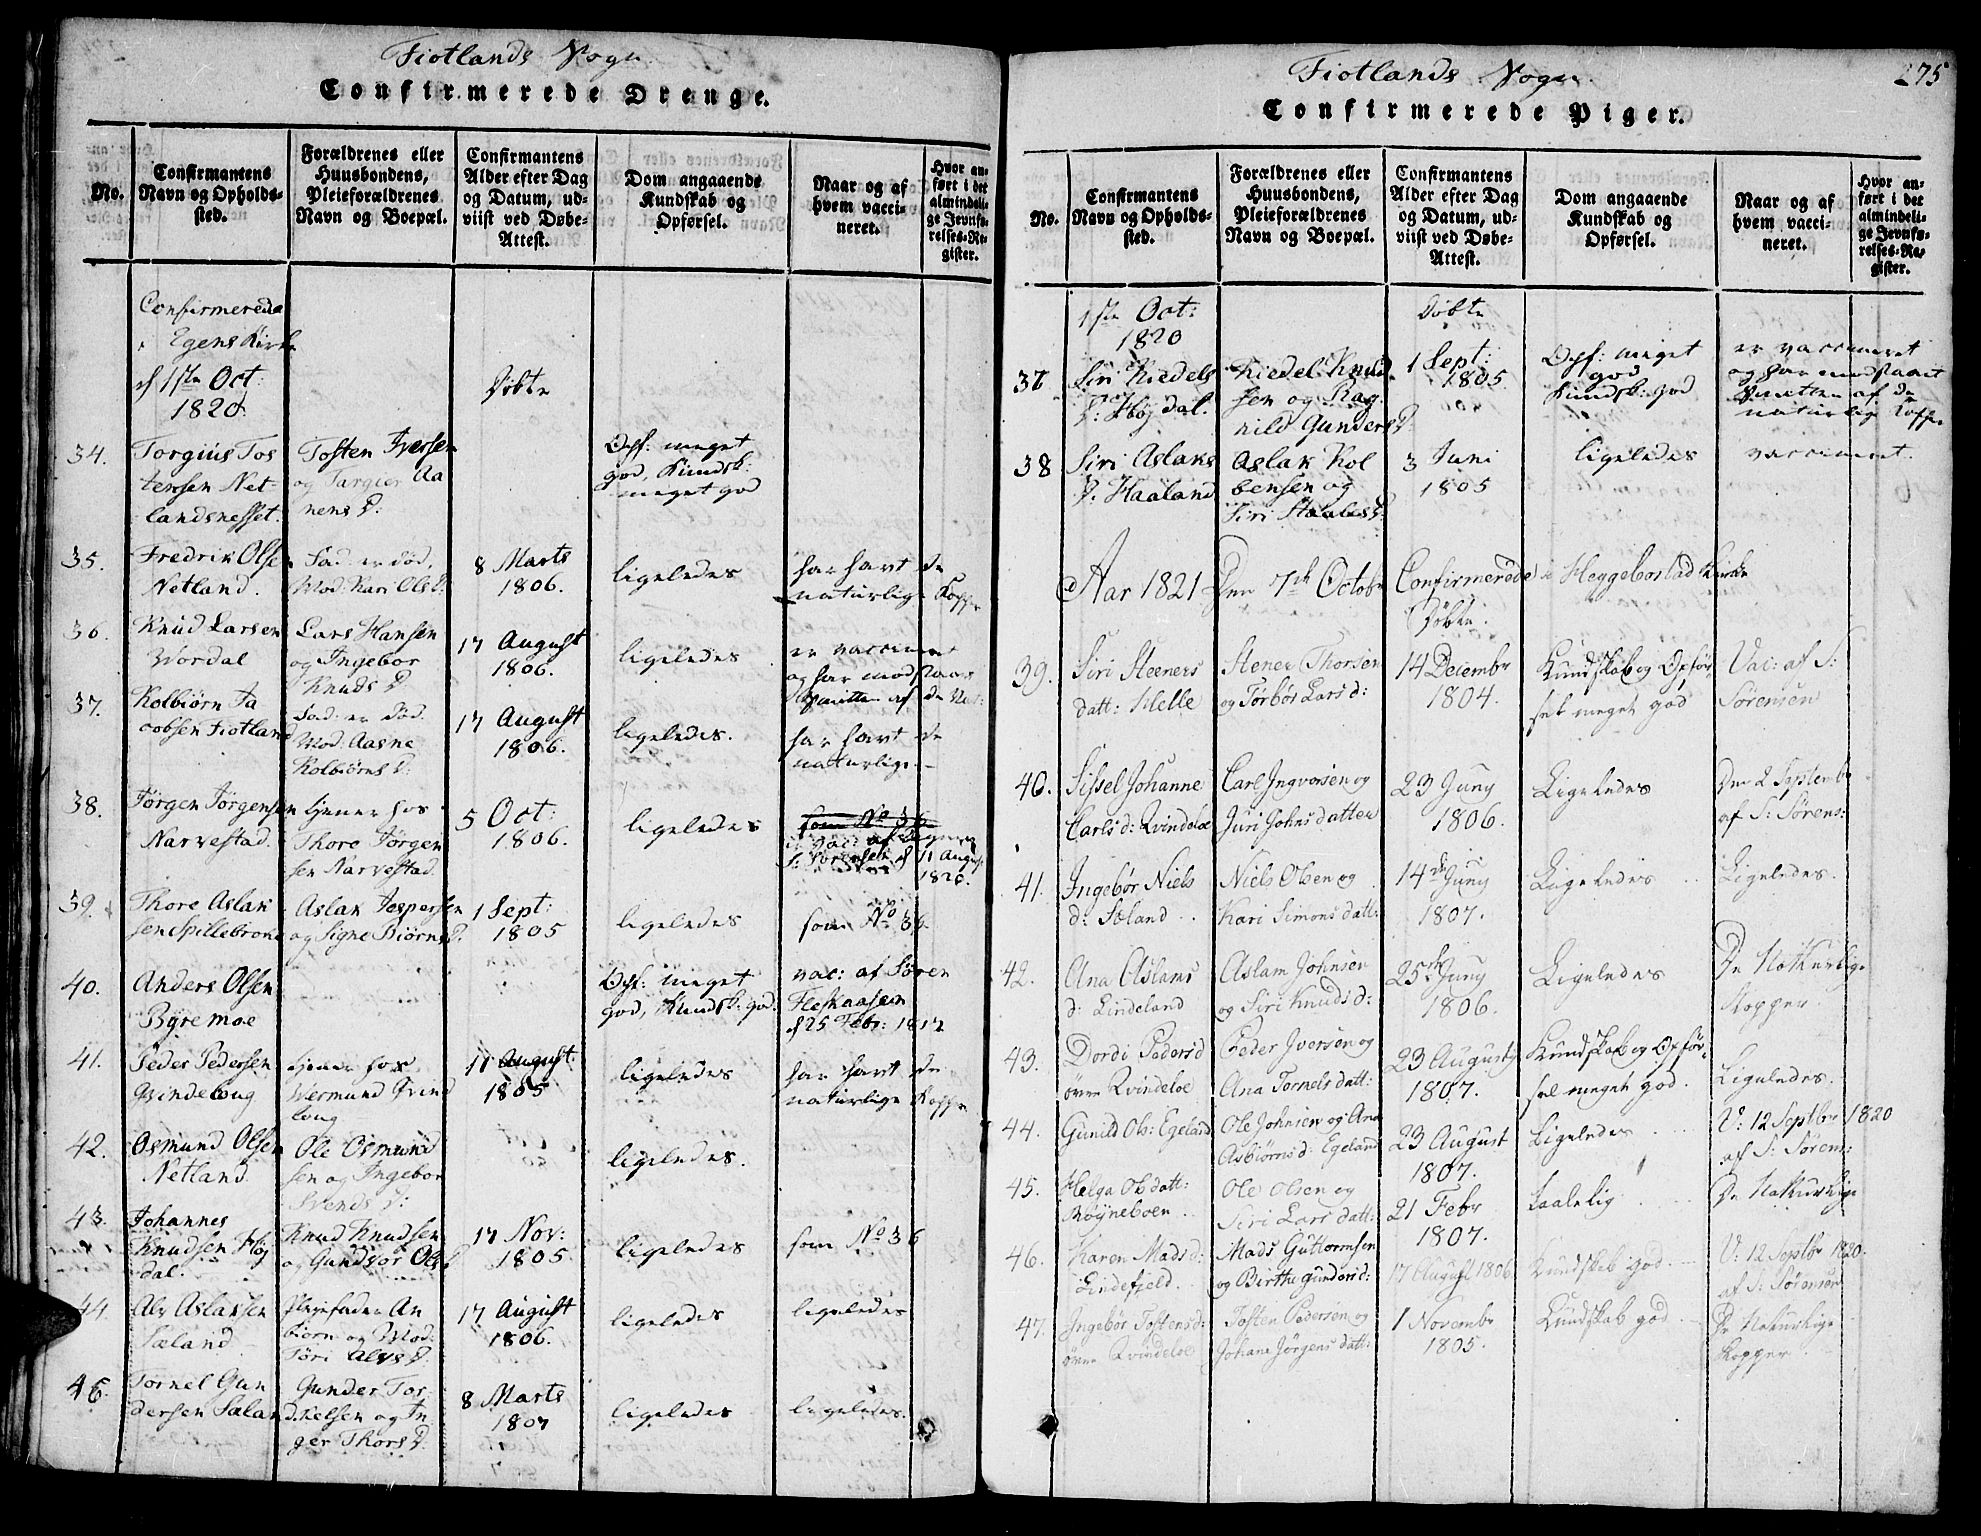 Fiotlands Sogn.
Confirmerede Drenge.
No.
Confirmantens
Navn og Opholds-
sted.
Forældrenes eller
Huusbondens,
Pleieforældrenes
Navn og Boepæl.
Confirmantens
Alder efter Dag
og Datum, ud-
viist ved Døbe-
Attest.
Dom angaaende
Kundskab og
Opførsel.
Naar og af
hvem vacci-
neret.
Hvor an-
ført i det
almindeli-
ge Jevnfø-
relses-Re-
gister.
Confirmerede
i Egens Kirke
d 1ste Oct:
1820.
Døbte
34.
Torgius Tos
tensen Net-
landsnesset.
Tosten Iversen
og Targier Aa
nens D:
Opf: meget
god, Kundsk:
meget god
35.
Fredrik Olsen
Netland.
Fad: er død,
Mod: Kari Ols D:
8 Marts
1806.
ligeledes
har havt de
naturlige Kopper
36.
Knud Larsen
Wordal
Lars Hansen
og Ingebor
Knuds D.
17 August
1806.
ligeledes
er vaccineret
og har modstaaet
Smitten af de Nat:
37.
Kolbiørn Ja
cobsen Fiotland
Fad: er død.
Mod: Aasne
Kolbiørns D:
17 August
1806.
ligeledes.
har havt de
naturlige
38.
Jørgen Jørgensen
Narvestad.
tjener hos
Thore Jørgen
sen Narvestad.
5 Oct:
1806.
ligeledes
som No 36
vac: af
S: Sørensen d 11 August
1820.
39.
Thore Aslak
sen Spillebrone
Aslak Jespersen
og Signe Biørns D.
1 Sept:
1805
ligeledes
som No 36
40.
Anders Olsen
Byremoe
Opf: meget
god, Kundsk: god:
vac: af Søren
Fleskaasen
d 25 Febr: 1817
41.
Peder Pedersen
Qvindeloug
tjener hos
Wermund Qvind
loug
11 August:
1805
ligeledes
har havt de
naturlige Kopper
42.
Osmund Olsen
Netland
Ole Osmund
sen og Ingebor
Svends D:
ligeledes.
43.
Johannes
Knudsen Høj
dal.
Knud Knudsen
og Gundvor Ols D
17 Nov:
1805
ligeledes
som No 36
44
Alv Aslassen
Sæland
Plejefader An
biørn og Mod:
Tøri Alvs D.
17 August
1806.
ligeledes
ligeledes
45.
Tornel Gun
dersen Sæland
Gunder Tor
kelsen og In
ger Thors D.
8 Marts
1807
ligeledes
ligeledes.
Fiotlands Sogn.
275
Confirmerede Piger.
No.
Confirmantens
Navn og Opholds-
sted.
Forældrenes eller
Huusbondens,
Pleieforældrenes
Navn og Boepæl.
Confirmantens
Alder efter Dag
og Datum, ud-
viist ved Døbe-
Attest.
Dom angaaende
Kundskab og
Opførsel.
Naar og af
hvem vacci-
neret.
Hvor an-
ført i det
almindeli-
ge Jevnfø-
relses-Re-
gister.
1ste Oct:
1820
Døbte
37
Siri Kiedels
D: Højdal.
Kiedel Knud
sen og Rag
nild Gunders D
1 Sept:
1805.
Opf: meget
god
Kundsk: god
er vaccineret
og har modstaaet
Smitten af de
naturlig Kopper
38
Siri Aslaks
D. Haaland
Aslak Kol
bensen og
Siri Staales D:
3 Juni
1805
ligeledes
vaccineret.
Aar 1821 Den 7de Octobr Confirmerede i Heggebostad Kirke
Døbte.
39.
Siri Steeners
datt: Helle
Stener Thorsen
og Torbør Lars d:
14 Decembr
1804.
Kundskab og Opfør-
sel meget god
Vac: af S:
Sørensen
40.
Sissel Johanne
Carls d: Qvindeloe
Carl Ingvorsen og
Juri Johns datter
23 Juny
1806.
Ligeledes
Den 2 Septemb
af S: Sørens:
41.
Ingebør Niels
d: Sæland
Niels Olsen og
Kari Simons datt:
14de Juny
1807.
Ligeledes
Ligeledes.
42.
Ana Aslams
d: Lindeland
Aslam Johnsen
og Siri Knuds d:
25de Juny
1806.
Ligeledes
De Naturlige
Kopper
43.
Dordi Peders d
øvre Qvindeloe
Peder Iversen og
Ana Tornels datt:
23 Augusty
1807.
Kundskab og Opfør-
sel meget god.
Ligeledes.
44.
Gunild Ols: Egeland
Ole Johnsen og Ana
Asbiørns d: Egeland
23 August
1807.
Ligeledes
V: 12 Septbr 1820
af S: Sørens:
45.
Helga Ols datt:
Røyneboen
Ole Olsen og
Siri Lars datt:
21 Febr
1807.
Taalelig
De Naturlige
46.
Karen Mads d:
Lindefjeld.
Mads Guttormsen
og Birthe gunders d:
17 August 1806
Kundskab god.
V: 12 Septbr 1820.
af S: Sørensen
47.
Ingebør Tostens d:
øvre Qvindeloe
Tosten Pedersen og
Johane Jørgens datt:
1 Novembr
1805.
Kundskab god
De Naturlige
Kopper